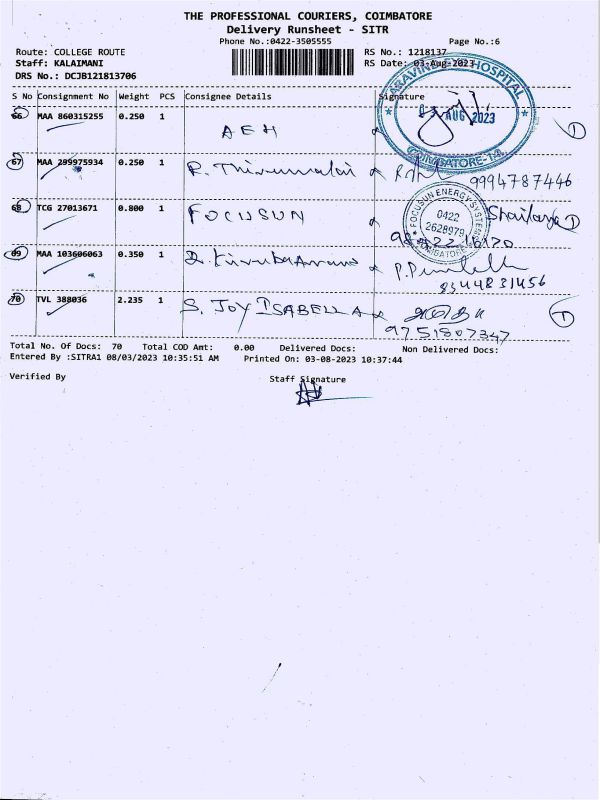 THE PROFESSIONAL COURIERS, COIMBATORE
Delivery Runsheet - SITR
Phone No.:0422-3505555 Page No.:6
Route: COLLEGE ROUTE RS No.: 1218137
Staff: KALAIMANI RS Date: 03-Aug-2023
DRS No.: DCJB121813706
S No Consignment No Weight PCS Consignee Details Signature
ARAVIND HOSPITAL
03 AUG 2023
COIMBATORE-14
66 MAA 860315255 0.250 1 AEH D
67 MAA 299975934 0.250 1 R. Thirumalai 9994787446
68 TCG 27013671 0.800 1 FOCUSUN D
FOCUSUN ENERGY SYSTEMS
0422
2628979
COIMBATORE
69 MAA 103606063 0.350 1
8344831456
70 TVL 388036 2.235 1 S. JOY ISABELLA D
9751807347
Total No. Of Docs: 70 Total COD Amt: 0.00 Delivered Docs: Non Delivered Docs:
Entered By :SITRA1 08/03/2023 10:35:51 AM Printed On: 03-08-2023 10:37:44
Verified By Staff Signature